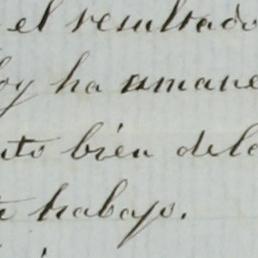 el resultado
oy ha amane
nto bién dela
trabajo.